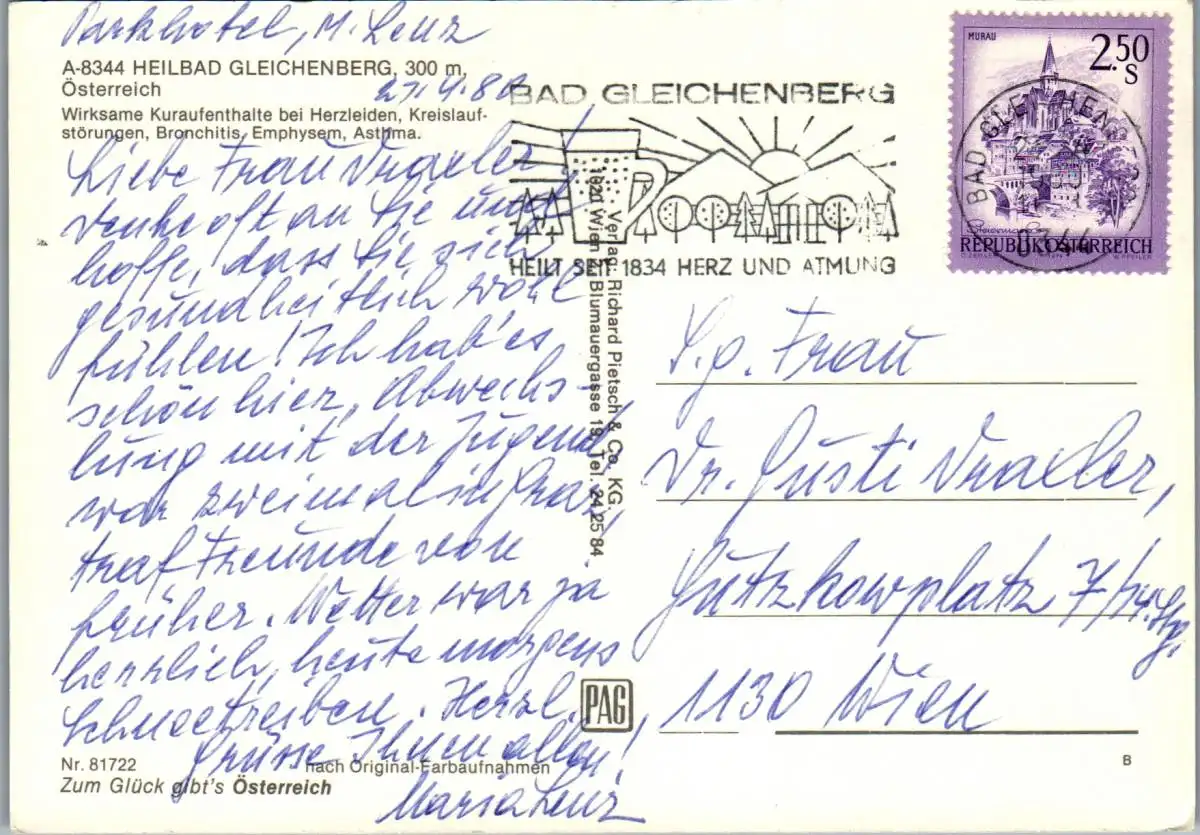 Parkhotel, M. Lenz
A-8344 HEILBAD GLEICHENBERG, 300 m,
Österreich
Wirksame Kuraufenthalte bei Herzleiden, Kreislauf-
störungen, Bronchitis, Emphysem, Asthma.
Liebe Frau Draxler,
denke oft an Sie und
hoffe, dass Sie sich
gesundheitlich wohl
fühlen! Ich hab' es
schön hier, Abwechs-
lung mit der Jugend,
war zweimal in Graz,
traf Freunde von
früher. Wetter war ja
herrlich, heute morgens
Schneetreiben. Herzl.
Grüsse Ihnen allen!
Maria Lenz
Nr. 81722
nach Original-Farbaufnahmen
Zum Glück gibt's Österreich
Verlag: Richard Pietsch & Co. KG.
1020 Wien, Blumauergasse 19, Tel. 24 25 84
PAG
BAD GLEICHENBERG
HEILT SEIT 1834 HERZ UND ATMUNG
MURAU
2.50
S
Steiermark
REPUBLIK ÖSTERREICH
BAD GLEICHENBERG
S. g. Frau
Dr. Gusti Draxler,
Gutzkowplatz 7
1130 Wien
B